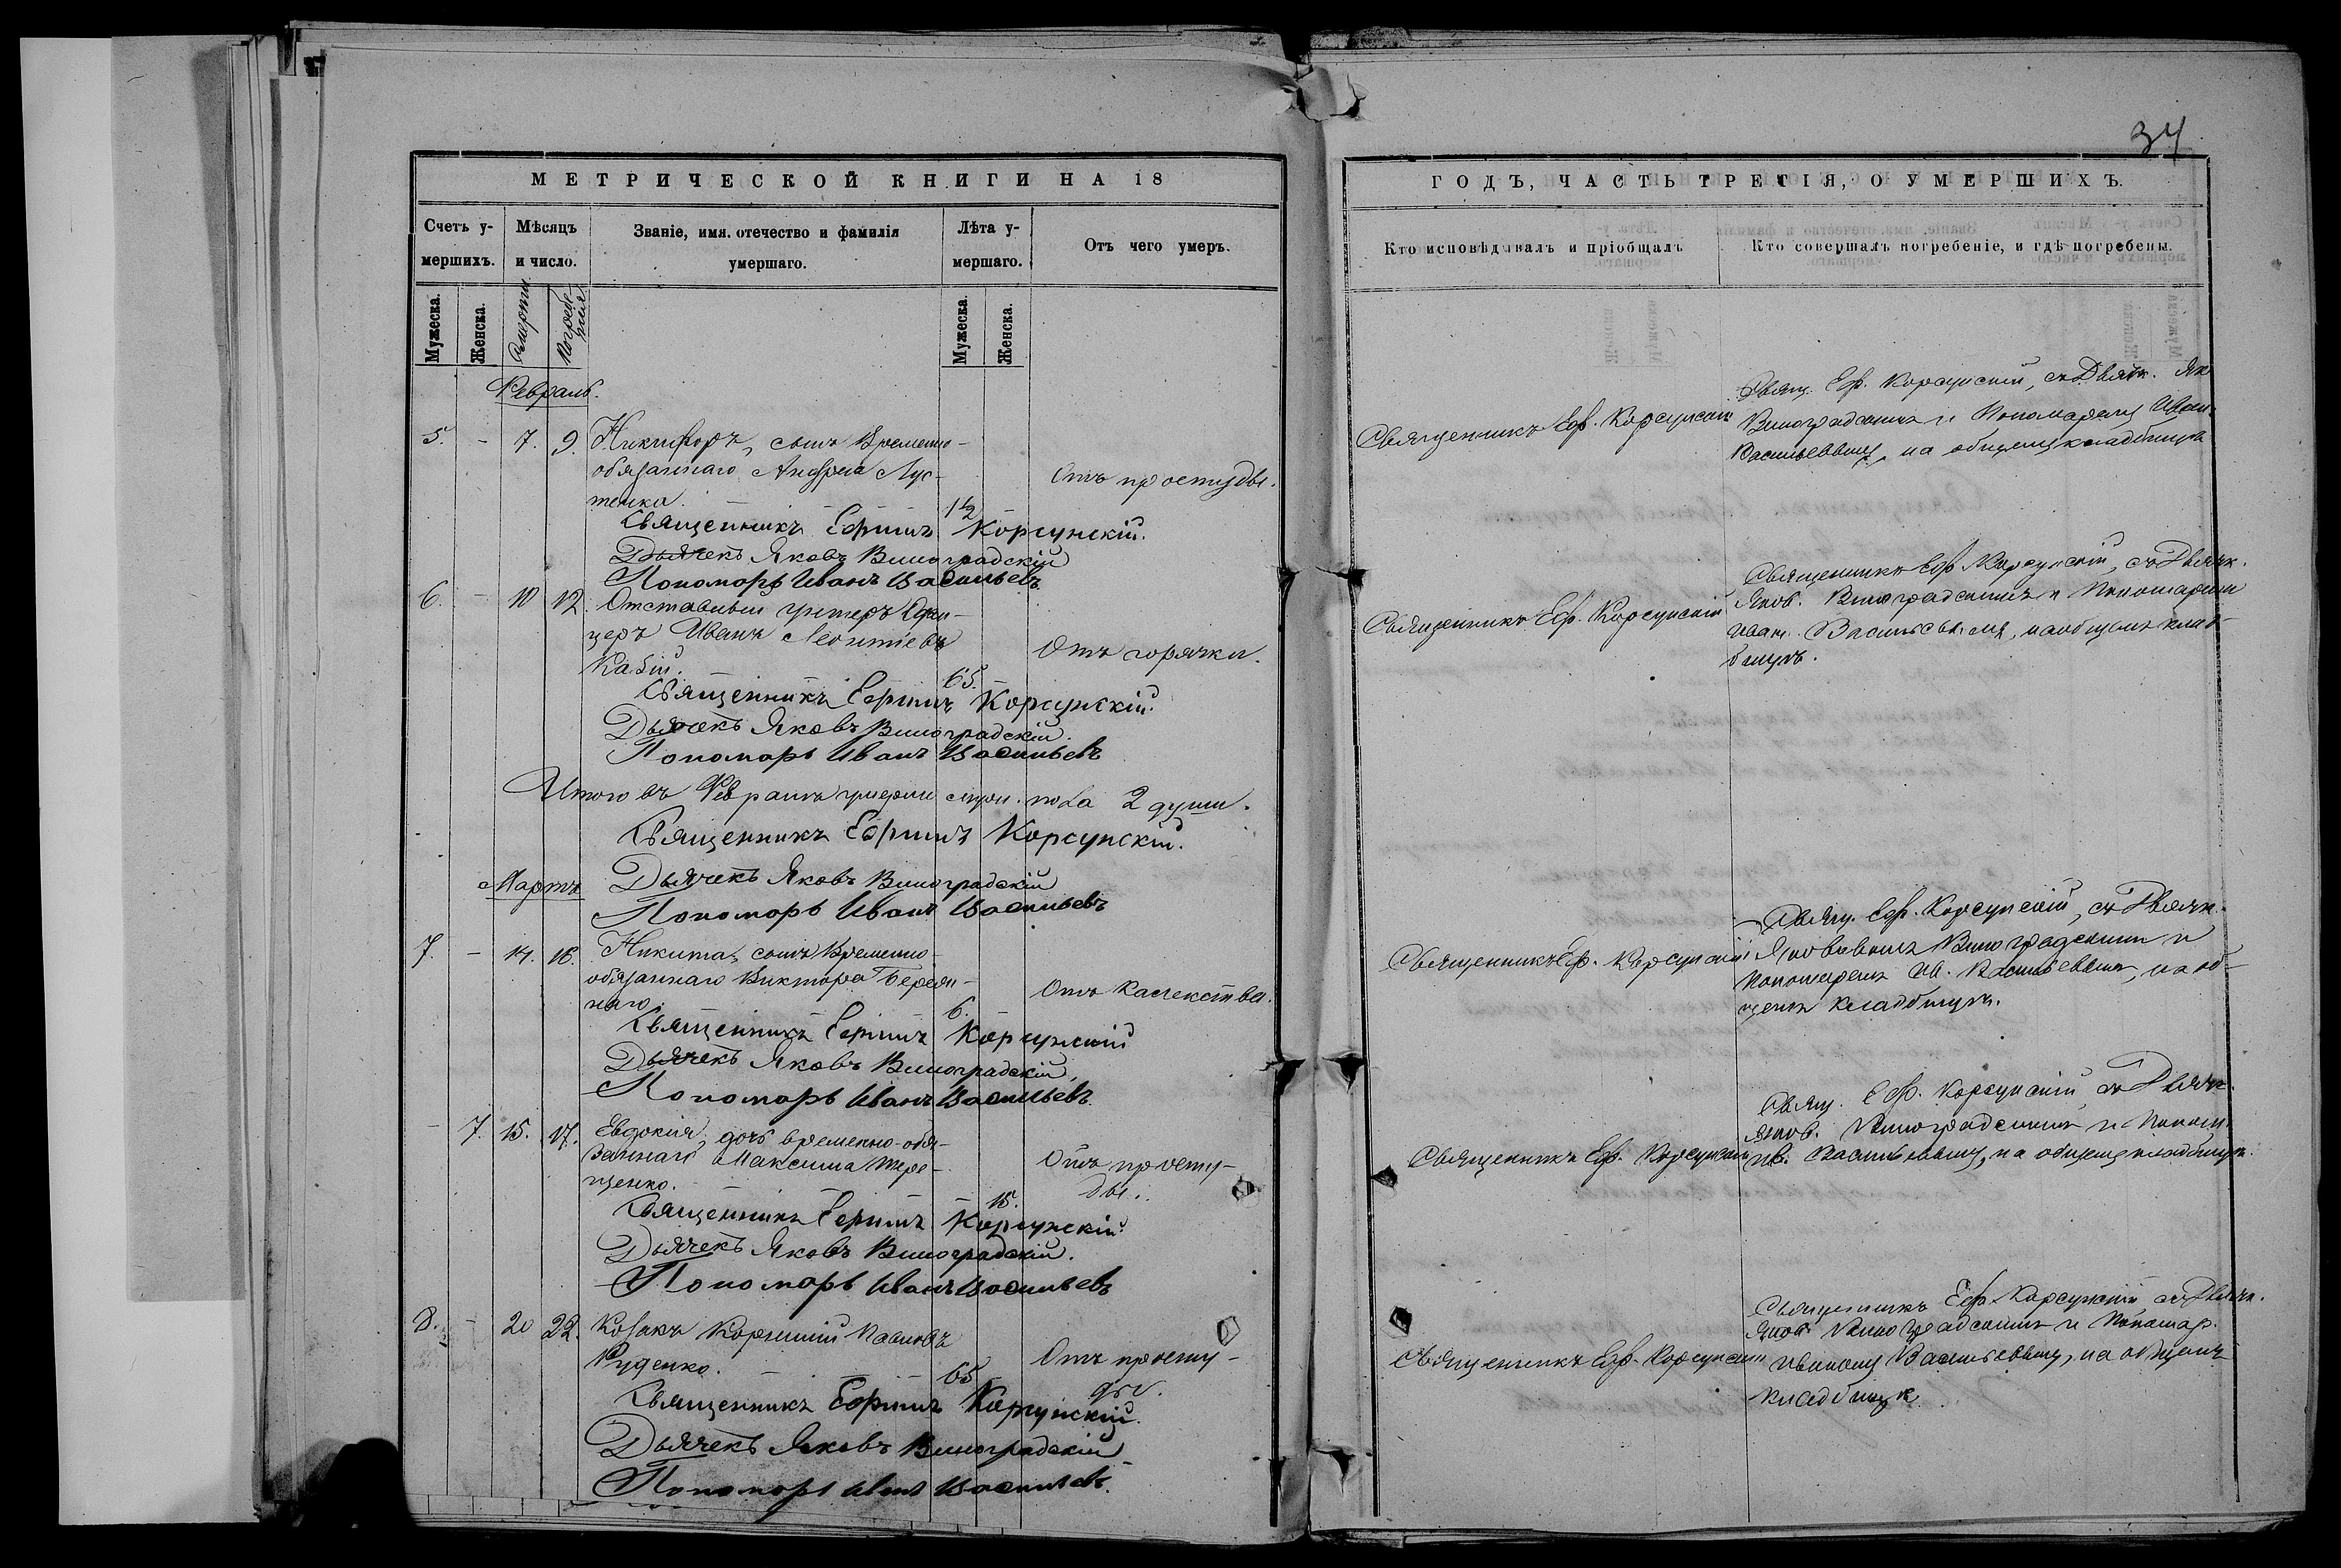 МЕТРИЧЕСКОЙ КНИГИ НА 18
Счетъ у-
мершихъ.
Мѣсяцъ
и число.
Званіе, имя. отечество и фамилія
умершаго.
Лѣта у-
мершаго.
Отъ чего умеръ.
Мужеска.
Женска.
Смерти
Погребе
нія
Мужеска.
Женска.
Февраль.
5. - 7. 9. Никифоръ, сынъ Временно-
обязаннаго Андрея Лус-
тенка.
1½
Отъ простуды.
Священникъ Ефимъ Корсунскій.
Дьячекъ Яковъ Виноградскій
Пономарь Иванъ Васильевъ.
6. - 10 12. Отставный унтеръ Офи-
церъ Иванъ Леонтіевъ
Кабій.
65.
Отъ горячки.
Священникъ Ефимъ Корсунскій.
Дьячекъ Яковъ Виноградскій.
Пономарь Иванъ Васильевъ
Итого въ Февралѣ умерли муж. пола 2 души.
Священникъ Ефимъ Корсунскій.
Дьячекъ Яковъ Виноградскій
Пономарь Иванъ Васильевъ
Мартъ
7. - 14. 16. Никита, сынъ Временно-
обязаннаго Виктора
наго.
6.
Отъ калекства.
Священникъ Ефимъ Корсунскій
Дьячекъ Яковъ Виноградскій,
Пономарь Иванъ Васильевъ.
- 7. 15. 17. Евдокия, дочь временно-обя-
заннаго Максима Тере-
щенко.
15.
Отъ просту-
ды.
Священникъ Ефимъ Корсунскій
Дьячекъ Яковъ Виноградскій.
Пономарь Иванъ Васильевъ
8. - 20 22. Козакъ Корнилій Павловъ
Руденко.
65
Отъ просту-
ды.
Священникъ Ефимъ Корсунскій.
Дьячекъ Яковъ Виноградскій
Пономарь Иванъ Васильевъ.
34
ГОДЪ, ЧАСТЬ ТРЕТІЯ, О УМЕРШИХЪ.
Кто исповѣдывалъ и пріобщалъ
Кто совершалъ погребеніе, и гдѣ погребены.
Священникъ Еф. Корсунскій
Свящ. Еф. Корсунскій, съ Дьячк. Як
Виноградскимъ и Пономаремъ Иван.
Васильевымъ, на общемъ кладбищѣ
Священникъ Еф. Корсунскій
Священникъ Еф. Корсунскій, съ Дьячк.
Яков. Виноградскимъ и Пономаремъ
Иван. Васильевымъ, на общемъ клад-
бищѣ.
Священникъ Еф. Корсунскій
Свящ. Еф. Корсунскій, съ Дьячк.
Яковомъ Виноградскимъ и
Пономаремъ Ив. Васильевымъ, на об-
щемъ кладбищѣ.
Священникъ Еф. Корсунскій
Свящ. Еф. Корсунскій съ Дьячк.
Яков. Виноградскимъ и Поном.
Ив. Васильевымъ, на общемъ кладбищѣ.
Священникъ Еф. Корсунскій
Священникъ Еф. Корсунскій, съ Дьячк.
Яков. Виноградскимъ и Пономар.
Иваномъ Васильевымъ, на общемъ
кладбищѣ.